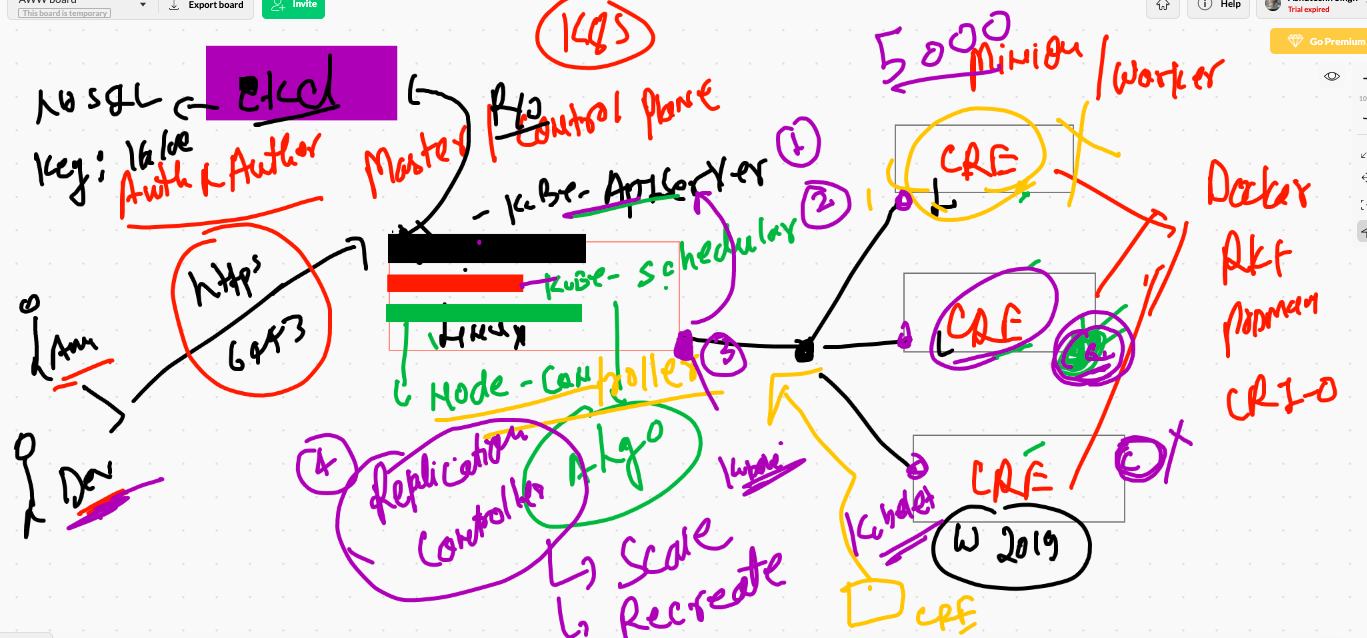 AWW board
This board is temporary
Export board
Invite
Help
Trial expired
Go Premium
K8S
5000
Minion / Worker
NoSQL
etcd
Key: Value
Auth & Author
Master | Control Plane
- Kube-ApiServer
1
2
https
6443
Kube-schedular
Linux
3
Node-Controller
4
Replication
Controller
Algo
Scale
Recreate
Dev
CRE
CRE
CRE
Kubelet
W 2019
CRE
C
Docker
RKT
Podman
CRI-O